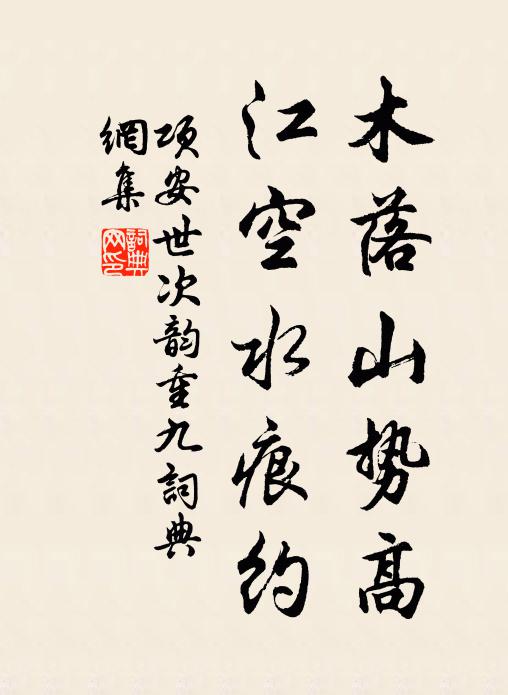 木落山势高
江空水痕约
项安世次韵重九詞典
網集
詞典
网印